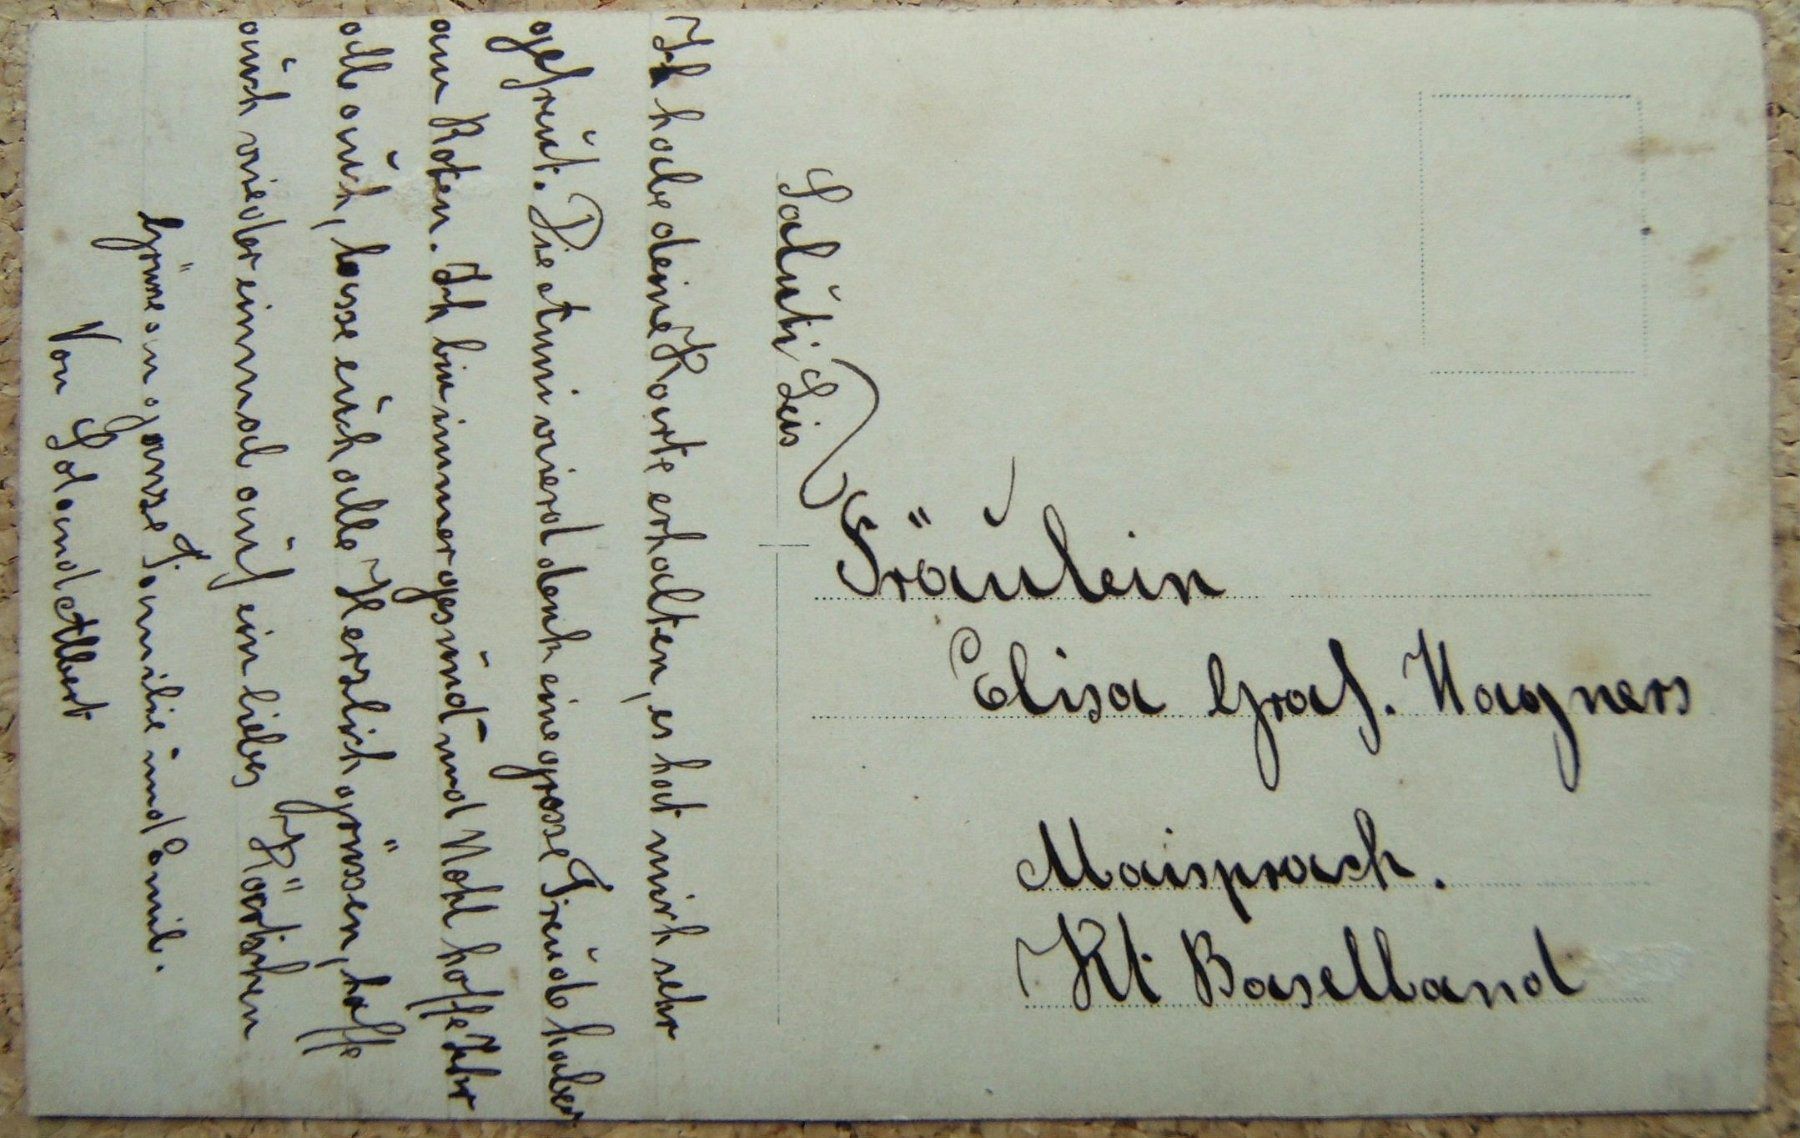 Saluti Leis
Ich habe deine Karte erhalten, es hat mich sehr
gefreut. Die wierd denk eine grosse Freude haben
am Roten. Ich bin immer gesund und Wohl hoffe Ihr
alle auch, lasse euch alle Herzlich grüssen, hoffe
auch wieder einmal auf ein liebes Kärtchen
Grüsse an ganze Familie und Emil.
Von Soland Albert
Fräulein
Elisa Graf. Wagners
Maisprach.
Kt Baselland